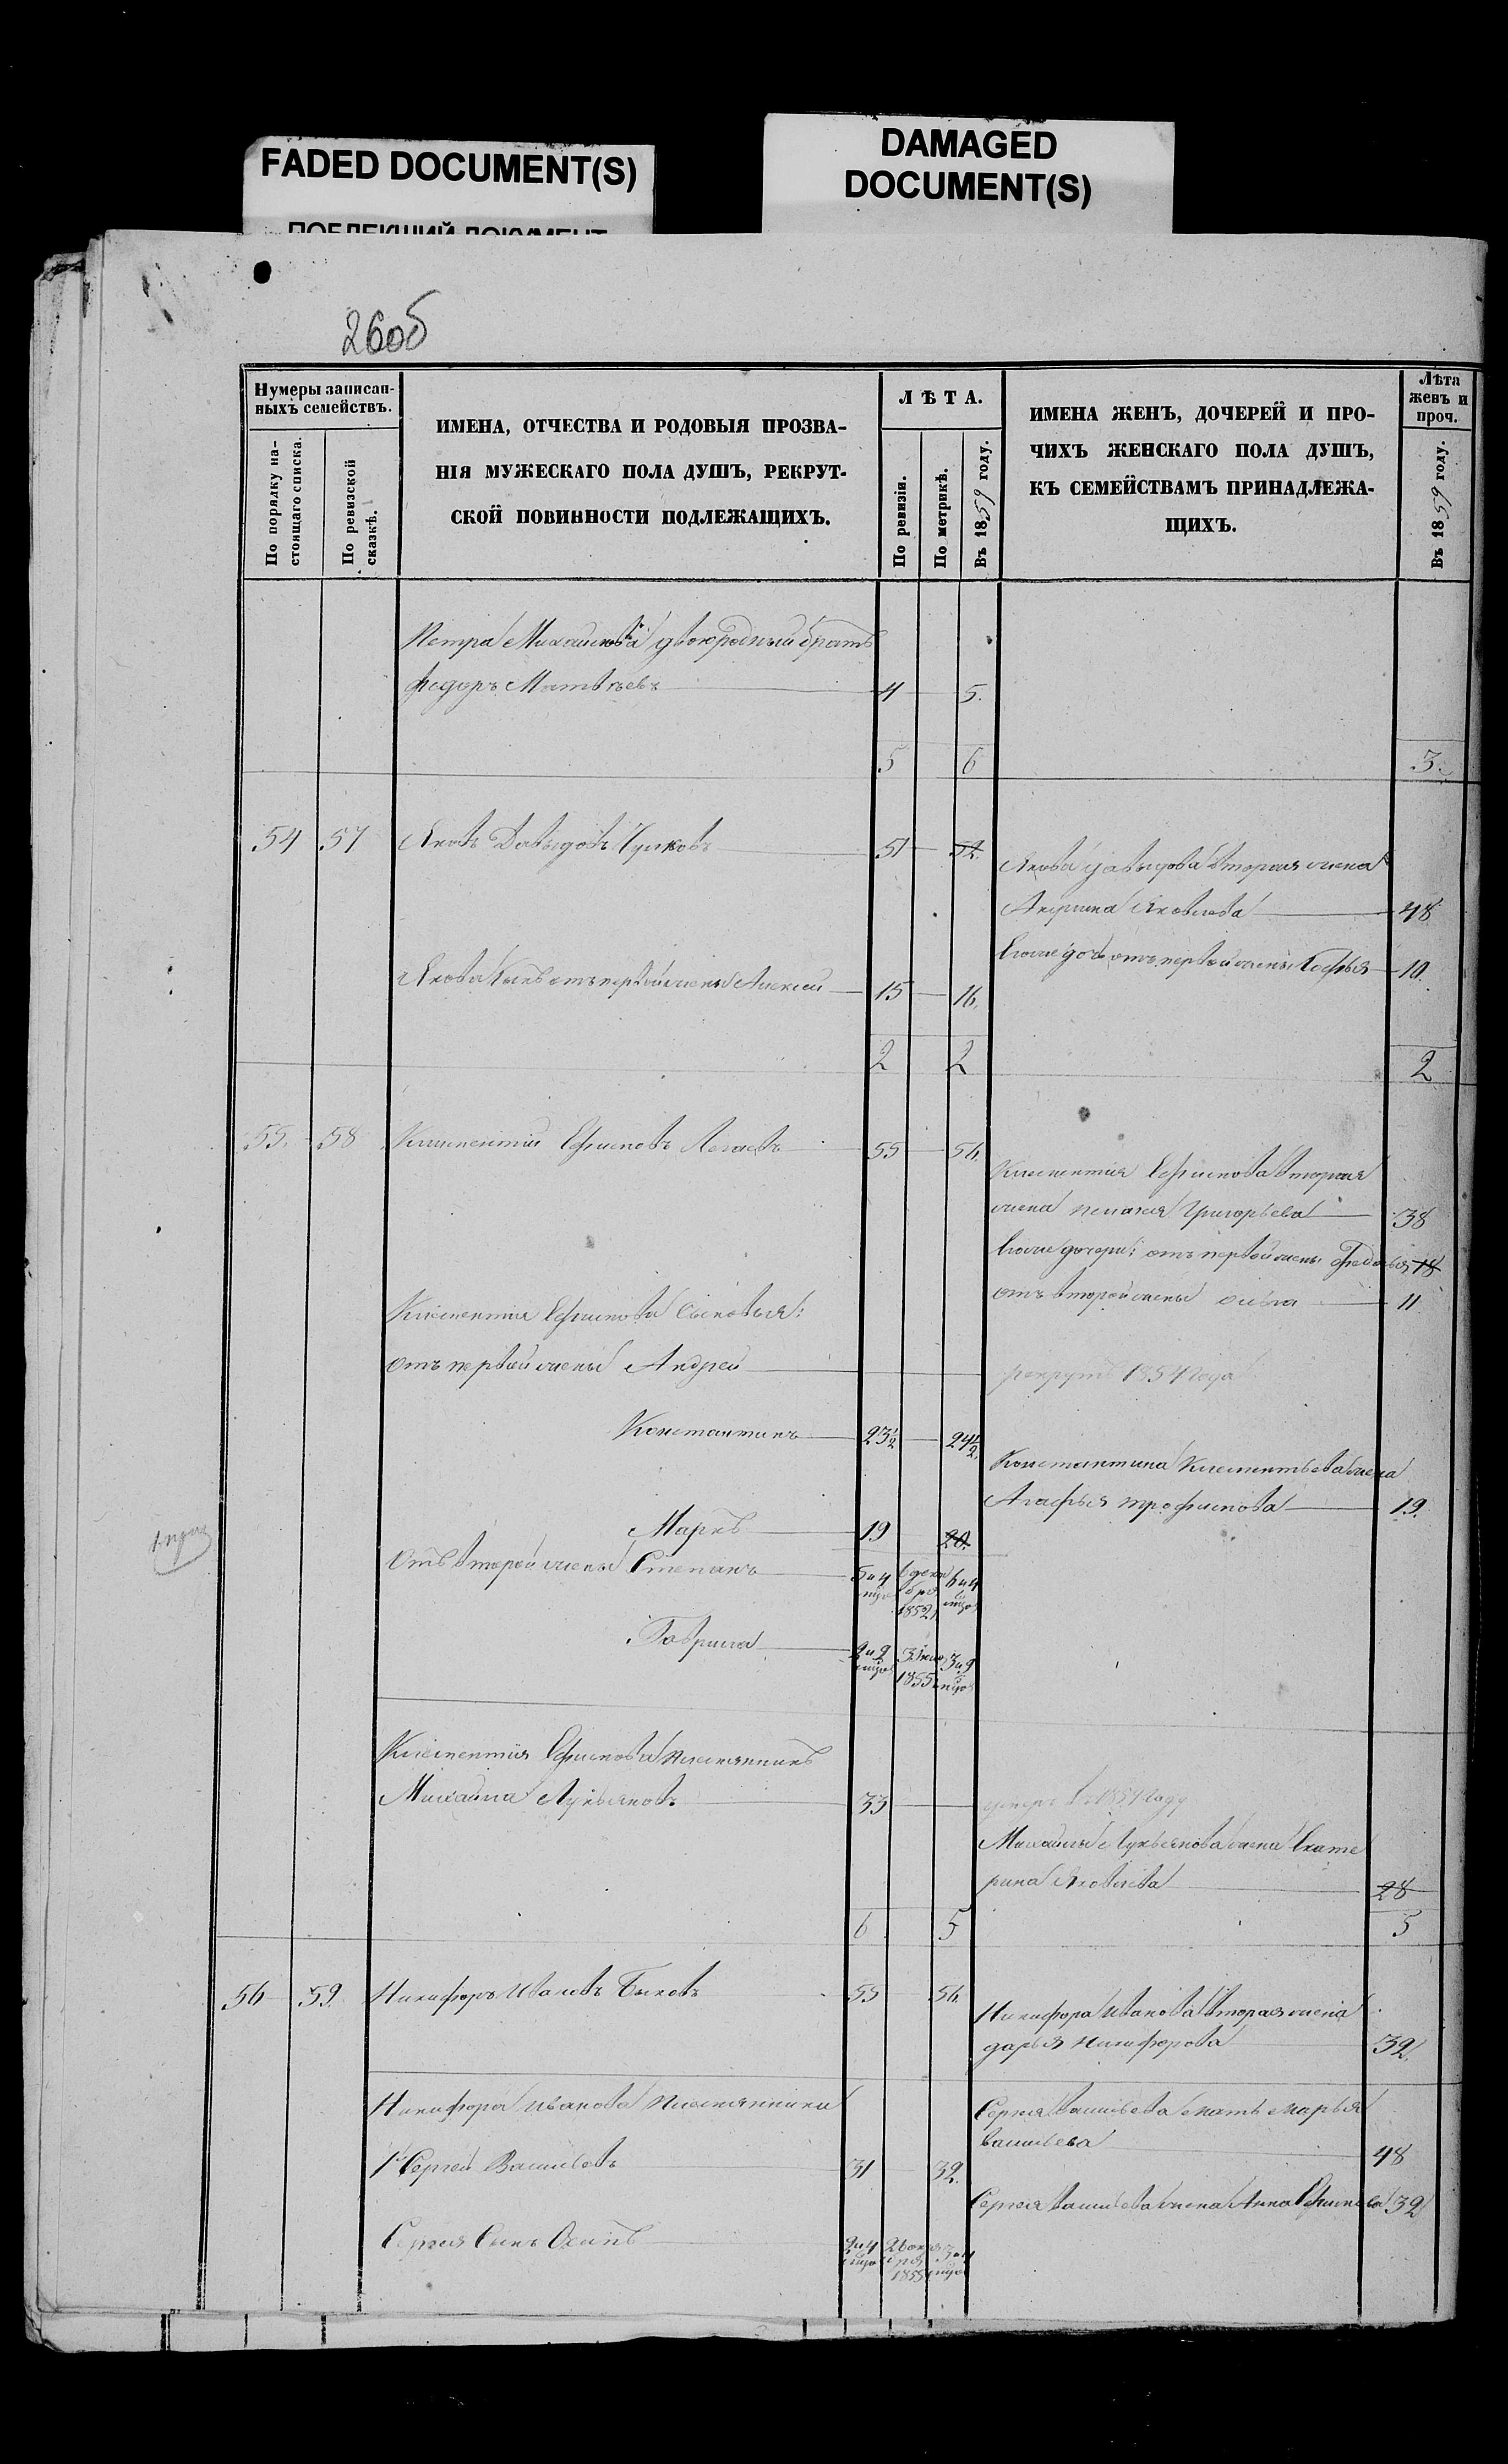 FADED DOCUMENT(S)
ПОБЛЕКШИЙ ДОКУМЕНТ
DAMAGED
DOCUMENT(S)
26об
Нумеры записан-
ныхъ семействъ.
По порядку на-
стоящаго списка.
По ревизской
сказкѣ.
ИМЕНА, ОТЧЕСТВА И РОДОВЫЯ ПРОЗВА-
НІЯ МУЖЕСКАГО ПОЛА ДУШЪ, РЕКРУТ-
СКОЙ ПОВИННОСТИ ПОДЛЕЖАЩИХЪ.
ЛѢТА.
По ревизіи.
По метрикѣ.
Въ 1859 году.
ИМЕНА ЖЕНЪ, ДОЧЕРЕЙ И ПРО-
ЧИХЪ ЖЕНСКАГО ПОЛА ДУШЪ,
КЪ СЕМЕЙСТВАМЪ ПРИНАДЛЕЖА-
ЩИХЪ.
Лѣта
женъ и
проч.
Въ 1859 году.
Петра Михайлова двоюродный братъ
Федоръ Матвѣевъ 4 5.
5 6 3.
54 57 Яковъ Давыдовъ 51 52.
Якова Давыдова вторая жена
Акулина Яковлева 48
Его же дочь отъ первой жены Софья 10.
Якова сынъ отъ первой жены Алексей 15 16.
2 2 2
55. 58 Климентій Ефимовъ 55 56.
Климентия Ефимова вторая
жена Пелагея Григорьева 38
Его же дочери: отъ первой жены Федосья 18
отъ второй жены 11
Климентия Ефимова сыновья:
отъ первой жены Андрей
рекрутъ 1854 года
Константинъ 23½ 24½.
Константина Климентьева жена
Агафья Трофимова 19.
Маркъ 19 20.
Отъ второй жены Степанъ 5 и 4 декаб 1852 6 и 4
Гаврила 2 и 9 1855 3 и 9
Климентия Ефимова племянникъ
Михайла Лукьяновъ 33
умеръ въ году
Михайлы Лукьянова жена Екате
рина Яковлева 28
6 5 5
56 59. Никифоръ Ивановъ Быковъ 55 56.
Никифора Иванова вторая жена
Дарья Никифорова 32.
Никифора Иванова племянники
Сергея Васильева мать Марья
Васильева 48
1й Сергей Васильевъ 31 32.
Сергея Васильева жена Анна Ефимова 32
Сергея сынъ Осипъ 2 и 4 1855 3 и 4